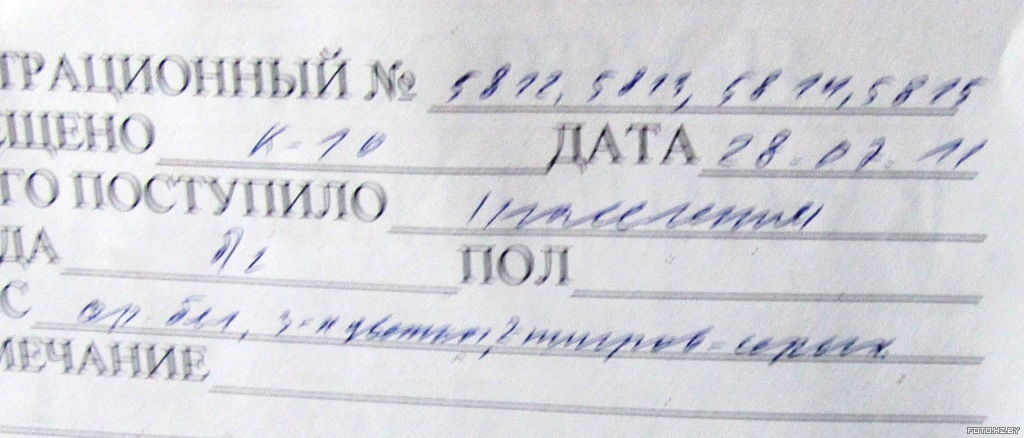 ТРАЦИОННЫЙ № 5812, 5813, 5814, 5815
ЕЩЕНО К-10 ДАТА 28-07-11
ГО ПОСТУПИЛО население
ДА ПОЛ
С ор-бел, 3-х цветн, 2 тигров-серых
МЕЧАНИЕ
FOTO.HZ.BY